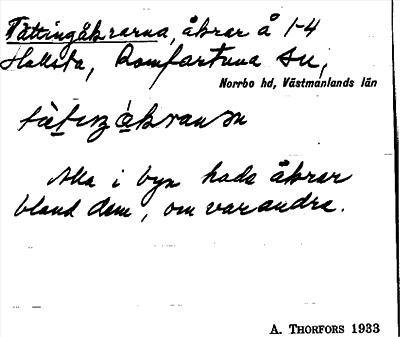 Tättingåkrarna, åkrar å 1-4
Hallsta, Romfartuna sn,
Norrbo hd, Västmanlands län
Alla i byn hade åkrar
bland dem, om varandra.
A. THORFORS 1933